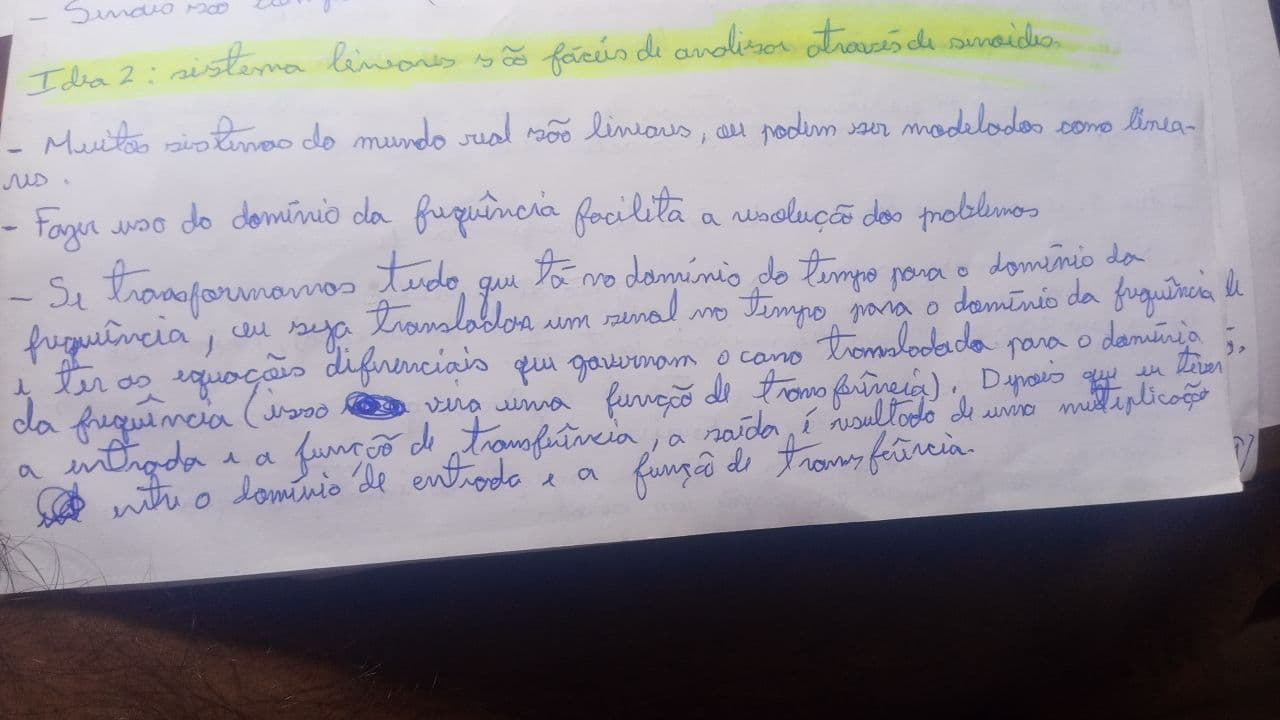 - Sinais são
Idea 2: sistema lineares são fáceis de analisar através de senoides.
- Muitos sistemas do mundo real são lineares, ou podem ser modelados como linea-
res.
- Fazer uso do domínio da frequência facilita a resolução dos problemas
- Se transformamos tudo que tá no domínio do tempo para o domínio da
frequência, ou seja transladar um senal no tempo para o domínio da frequência
e ter as equações diferenciais que governam o caso transladada para o domínio
da frequência (isso vira uma função de transferência). Depois que eu tiver
a entrada e a função de transferência, a saída é resultado de uma multiplicação
entre o domínio de entrada e a função de transferência.